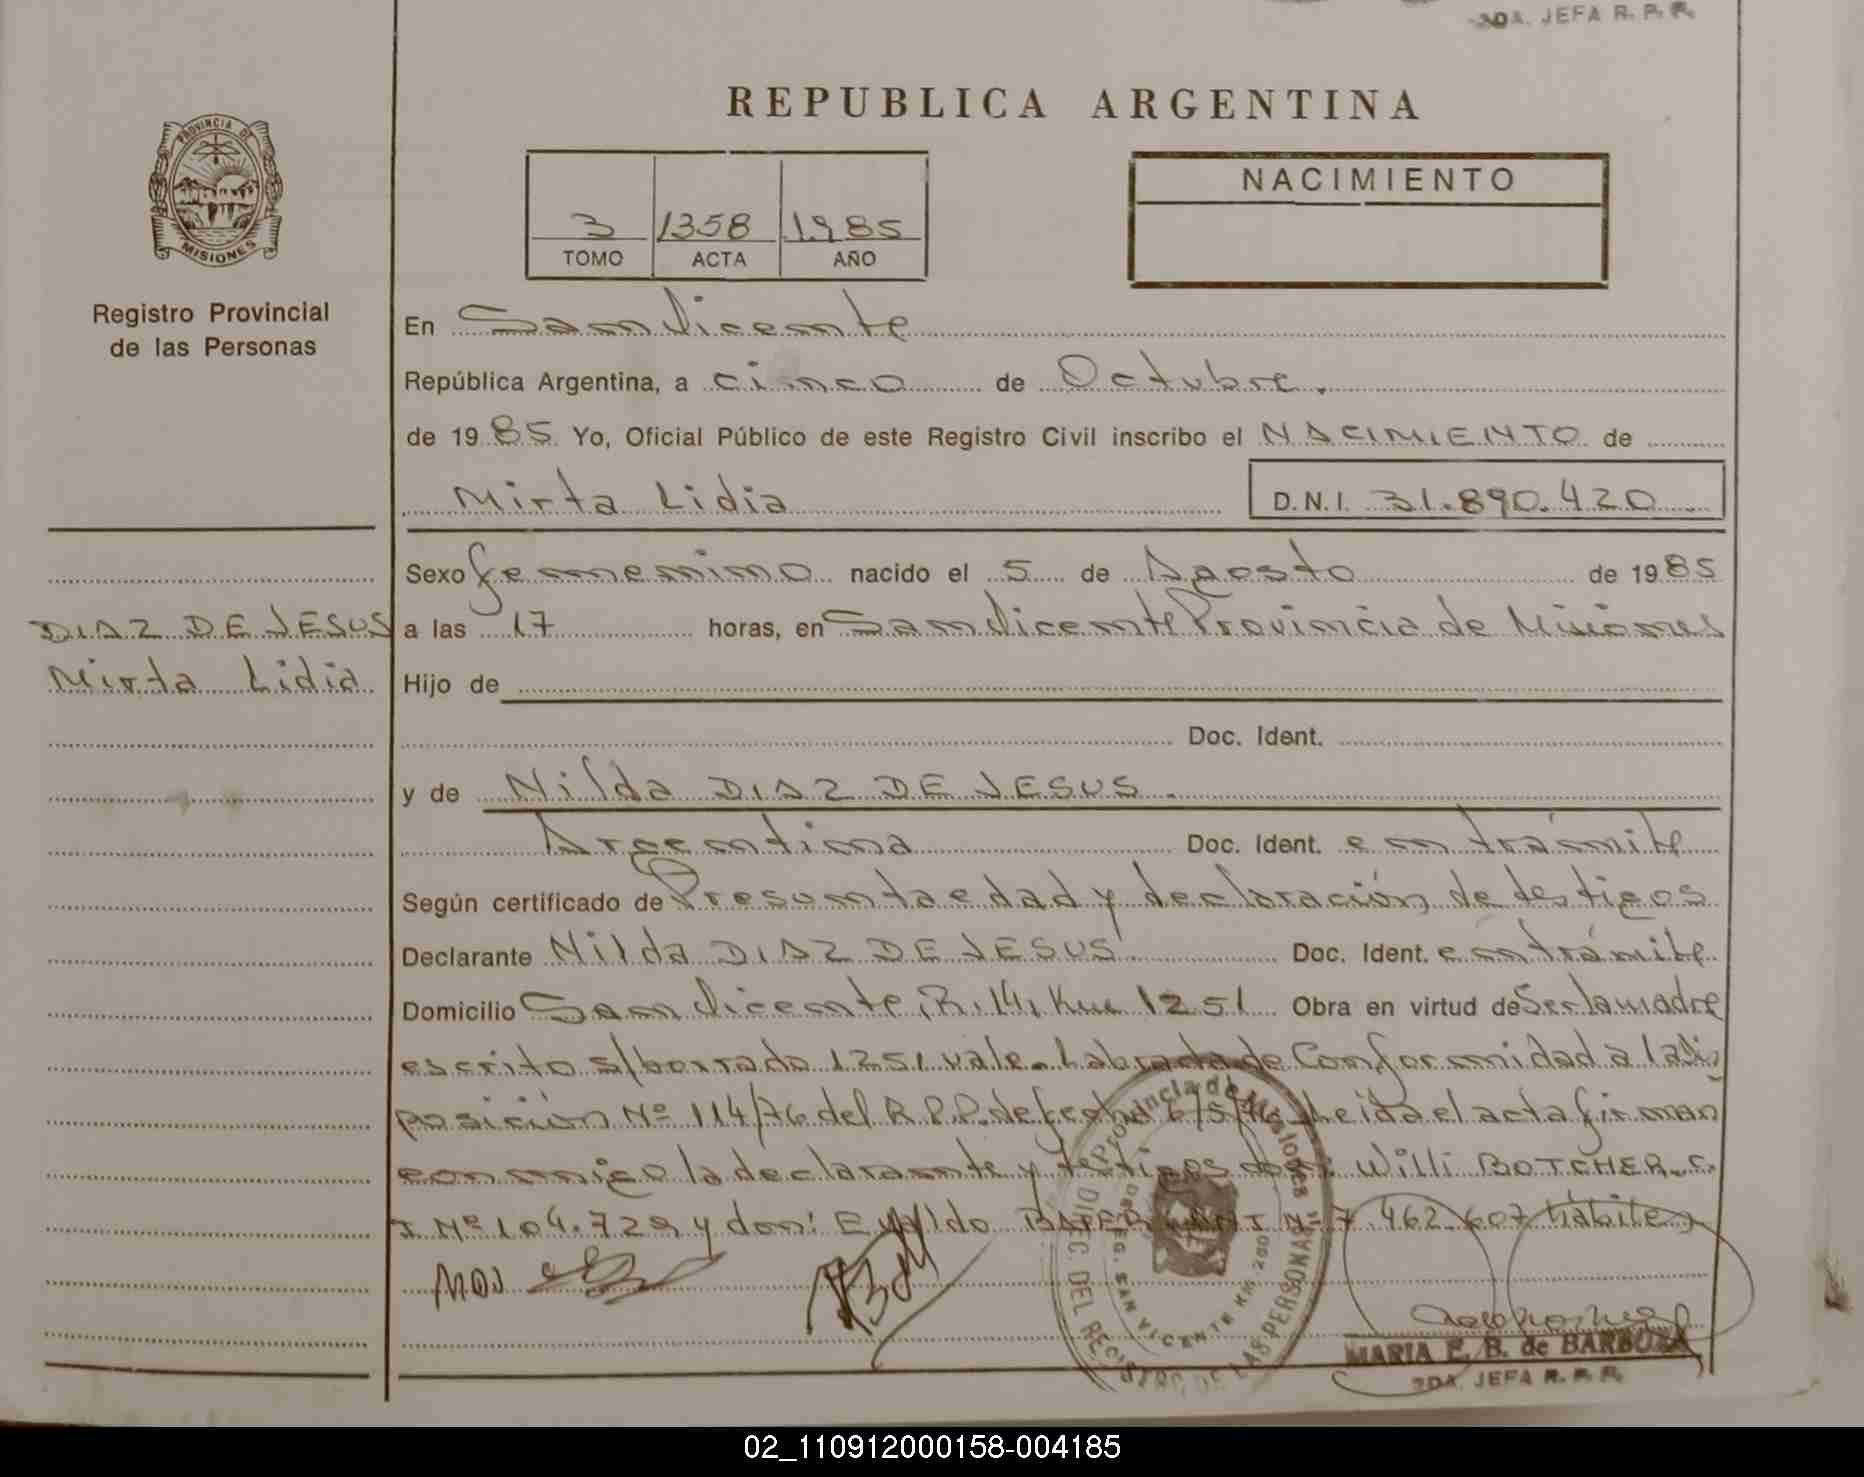 2DA. JEFA R. P. P.
REPUBLICA ARGENTINA
PROVINCIA DE
MISIONES
NACIMIENTO
3 1358 1985
TOMO ACTA AÑO
Registro Provincial
de las Personas
En San Vicente
República Argentina, a cinco de Octubre.
de 1985 Yo, Oficial Público de este Registro Civil inscribo el NACIMIENTO de
Mirta Lidia D.N.I. 31.890.420
Sexo femenino nacido el 5 de Agosto de 1985
DIAZ DE JESUS
Mirta Lidia
a las 17 horas, en San Vicente Provincia de Misiones
Hijo de
Doc. Ident.
y de Nilda DIAZ DE JESUS.
Argentina Doc. Ident. en trámite
Según certificado de Presunta edad y declaración de testigos
Declarante Nilda DIAZ DE JESUS Doc. Ident. en trámite
Domicilio San Vicente, R. 14, Km 1251 Obra en virtud de Ser la madre
escrito s/borrado 1251 vale. Labrada de Conformidad a la Dis
posición Nº 114/76 del R.P.P. de fecha 6/5/76 Leida el acta firman
conmigo la declarante y testigos don: Willi BOTCHER. C.
I Nº 104.729 y don: Evaldo Nº 7.462.607 hábiles
Provincia de Misiones
DIREC. DEL REGISTRO DE LAS PERSONAS
DELEG. SAN VICENTE KM
MARIA E. B. de BARBOZA
2DA. JEFA R. P. P.
02_110912000158-004185